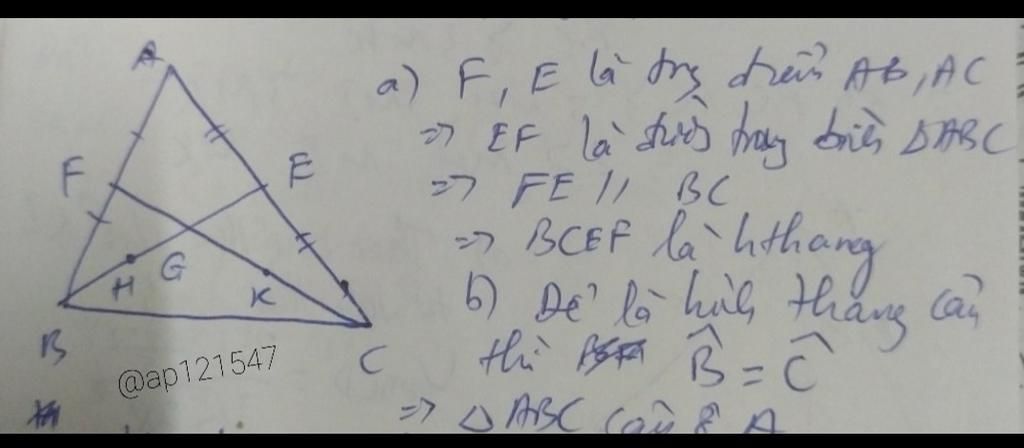 A
F
E
H
G
K
B
C
@ap121547
a) F, E là trg điểm AB, AC
=> EF là đường trung bình ΔABC
=> FE // BC
=> BCEF là hthang
b) Để là hình thang cân
thì B̂ = Ĉ
=> Δ ABC cân ở A